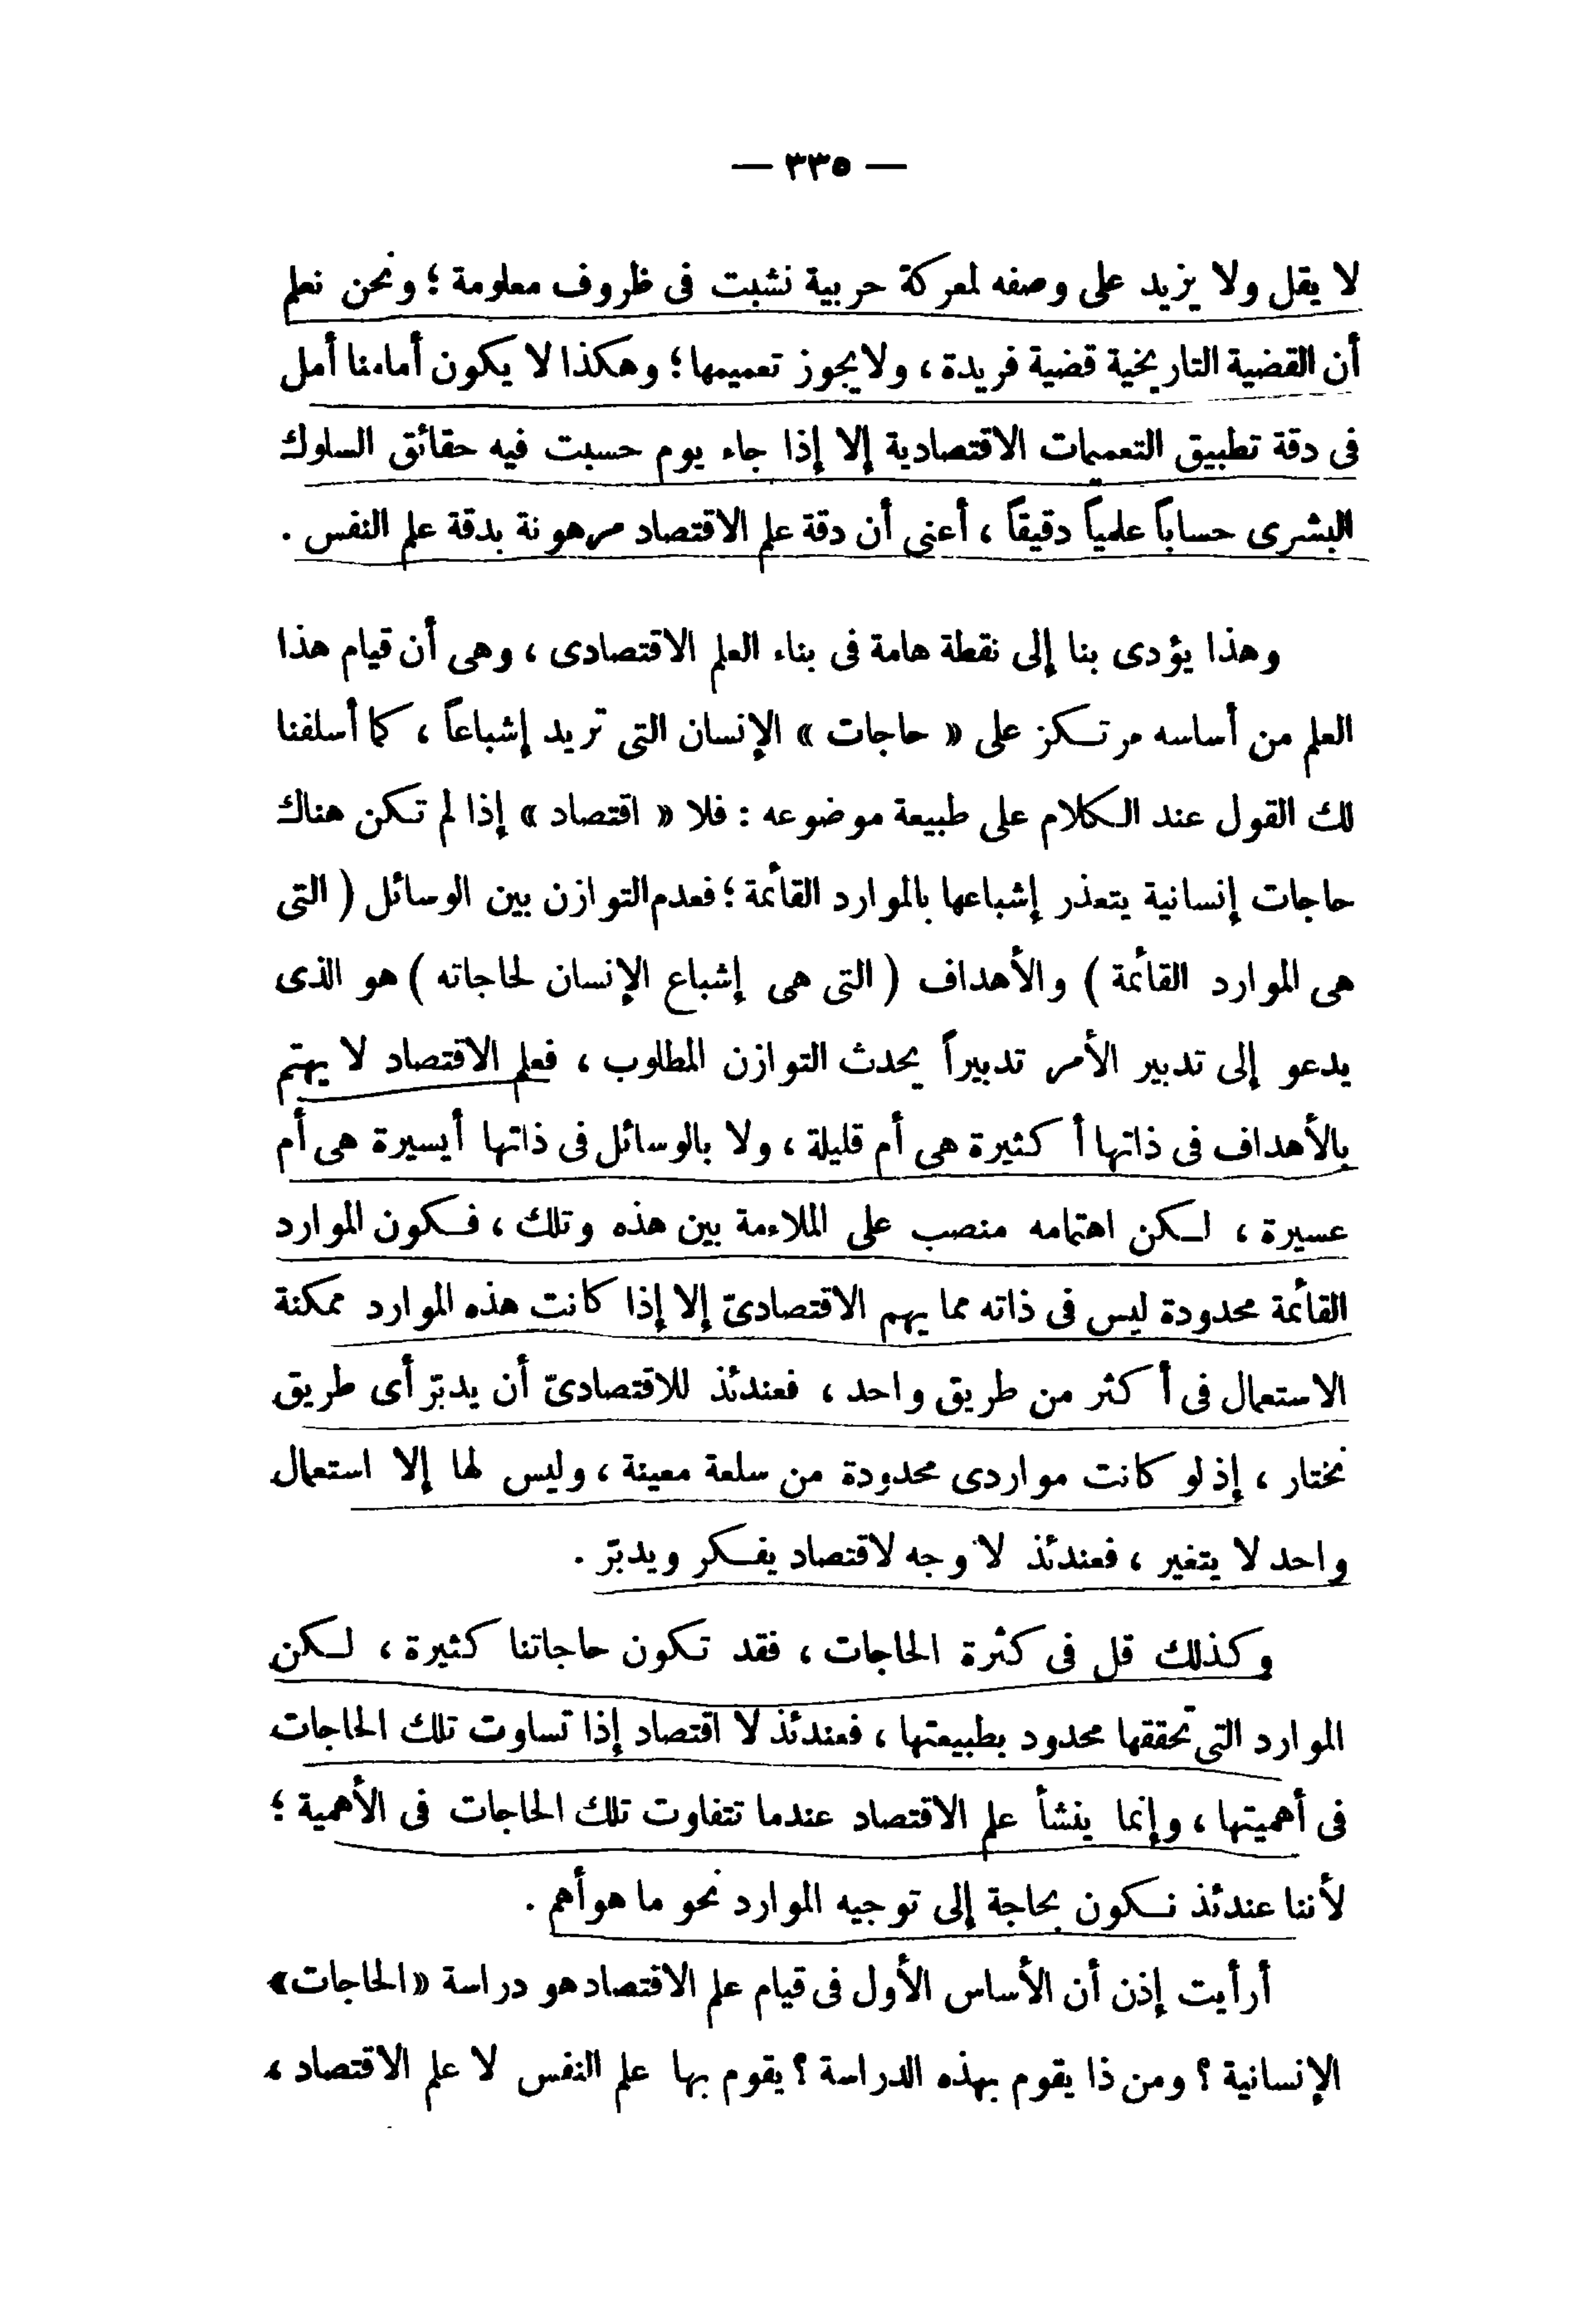 — ٣٣٥ —
لا يقل ولا يزيد على وصفه لمعركة حربية نشبت فى ظروف معلومة ؛ ونحن نعلم
أن القضية التاريخية قضية فريدة ، ولا يجوز تعميمها ؛ وهكذا لا يكون أمامنا أمل
فى دقة تطبيق التعميمات الاقتصادية إلا إذا جاء يوم حسبت فيه حقائق السلوك
البشرى حساباً علمياً دقيقاً ، أعنى أن دقة علم الاقتصاد مرهونة بدقة علم النفس .
وهذا يؤدى بنا إلى نقطة هامة فى بناء العلم الاقتصادى ، وهى أن قيام هذا
العلم من أساسه مرتكز على « حاجات » الإنسان التى تريد إشباعاً ، كما أسلفنا
لك القول عند الكلام على طبيعة موضوعه : فلا « اقتصاد » إذا لم تكن هناك
حاجات إنسانية يتعذر إشباعها بالموارد القائمة ؛ فعدم التوازن بين الوسائل ( التى
هى الموارد القائمة ) والأهداف ( التى هى إشباع الإنسان لحاجاته ) هو الذى
يدعو إلى تدبير الأمر تدبيراً يحدث التوازن المطلوب ، فعلم الاقتصاد لا يهتم
بالأهداف فى ذاتها أ كثيرة هى أم قليلة ، ولا بالوسائل فى ذاتها أيسيرة هى أم
عسيرة ، لكن اهتمامه منصب على الملاءمة بين هذه وتلك ، فكون الموارد
القائمة محدودة ليس فى ذاته مما يهم الاقتصادىّ إلا إذا كانت هذه الموارد ممكنة
الاستعمال فى أكثر من طريق واحد ، فعندئذ للاقتصادىّ أن يدبّر أى طريق
نختار ، إذ لو كانت مواردى محدودة من سلعة معينة ، وليس لها إلا استعمال
واحد لا يتغير ، فعندئذ لا وجه لاقتصاد يفكر ويدبّر .
وكذلك قل فى كثرة الحاجات ، فقد تكون حاجاتنا كثيرة ، لكن
الموارد التى تحققها محدود بطبيعتها ، فعندئذ لا اقتصاد إذا تساوت تلك الحاجات
فى أهميتها ، وإنما ينشأ علم الاقتصاد عندما تتفاوت تلك الحاجات فى الأهمية ؛
لأننا عندئذ نكون بحاجة إلى توجيه الموارد نحو ما هو أهم .
أرأيت إذن أن الأساس الأول فى قيام علم الاقتصاد هو دراسة «الحاجات»
الإنسانية ؟ ومن ذا يقوم بهذه الدراسة ؟ يقوم بها علم النفس لا علم الاقتصاد ،